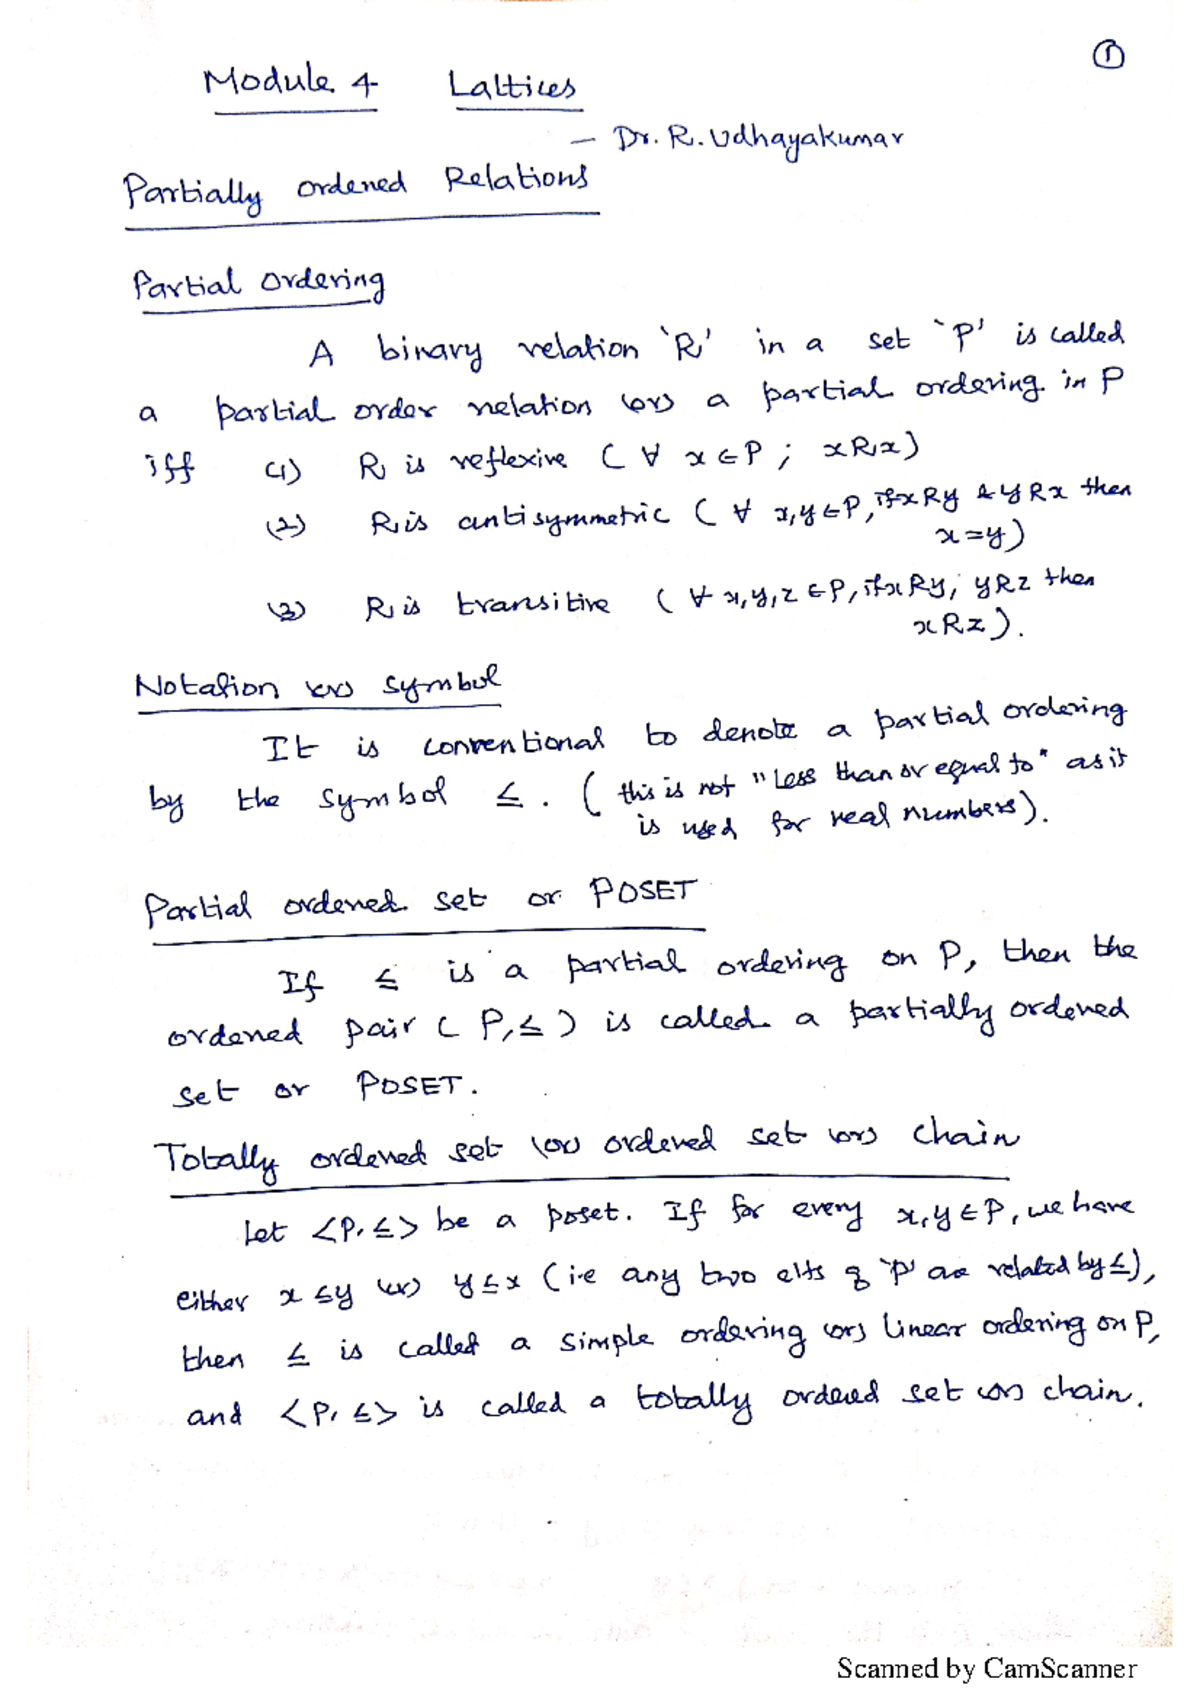 ①
Module 4 Lattices
- Dr. R. Udhayakumar
Partially ordered Relations
Partial ordering
A binary relation 'R' in a set 'P' is called
a partial order relation (or) a partial ordering in P
iff (1) R is reflexive (∀ x∈P ; xRx)
(2) R is antisymmetric (∀ x,y∈P, if xRy & yRx then
x=y)
(3) R is transitive (∀ x,y,z∈P, if xRy, yRz then
xRz).
Notation (or) symbol
It is conventional to denote a partial ordering
by the symbol ≤. (this is not "Less than or equal to" as it
is used for real numbers).
Partial ordered set or POSET
If ≤ is a partial ordering on P, then the
ordered pair (P,≤) is called a partially ordered
set or POSET.
Totally ordered set (or) ordered set (or) chain
Let <P,≤> be a poset. If for every x,y∈P, we have
either x≤y (or) y≤x (i.e any two elts of 'P' are related by ≤),
then ≤ is called a simple ordering (or) linear ordering on P,
and <P,≤> is called a totally ordered set (or) chain.
Scanned by CamScanner